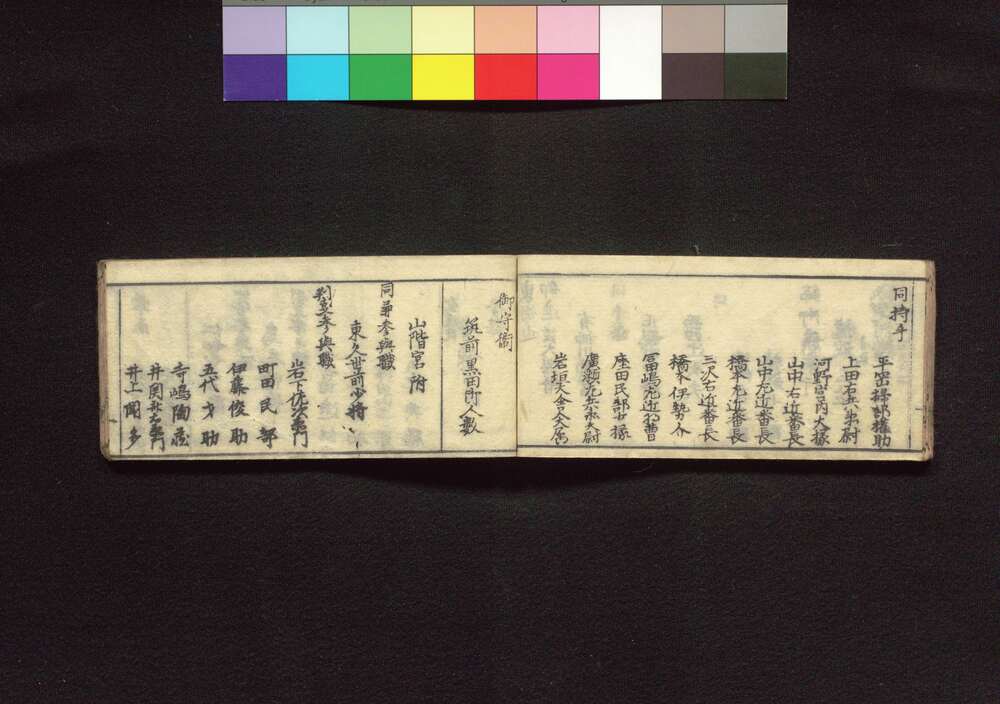 同持手
平田掃部権助
上田右兵衛大尉
河野宮内大掾
山中右近番長
山中左近番長
橋本左近番長
三次右近番長
橋本伊勢介
冨嶋左近府曹
座田民部少掾
廣瀬左兵衛大尉
岩垣大舎人大属
御守衛
筑前黒田附人数
山階宮附
同並参與職
東久世前少将
判事参與職
岩下佐次右衛門
町田民部
伊藤俊助
五代才助
寺嶋陶蔵
井関斎右衛門
井上聞多